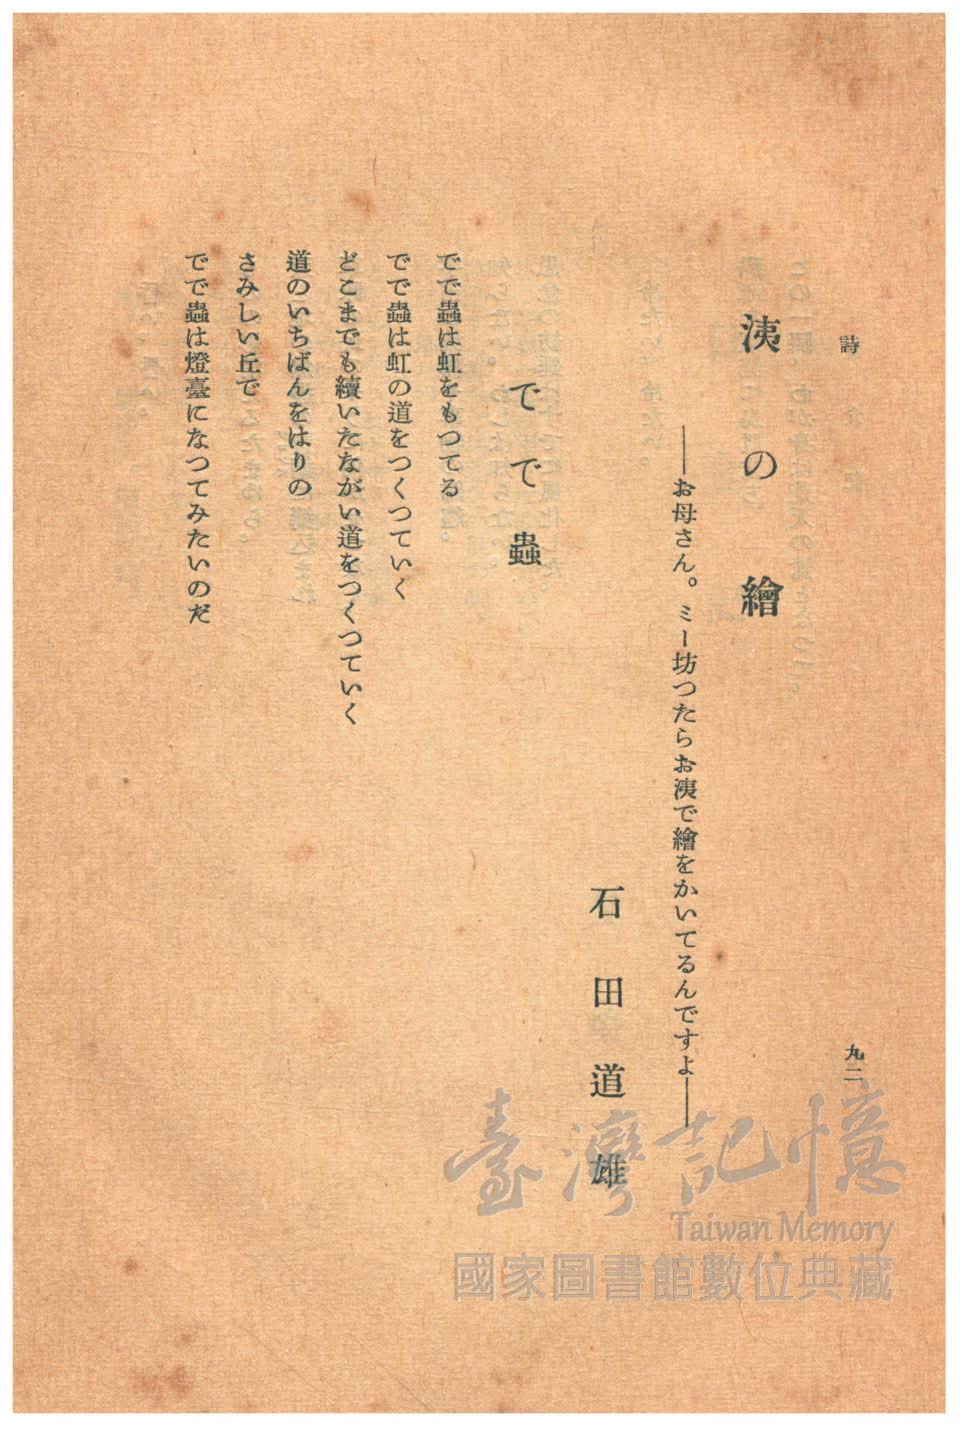 詩
九二
洟の繪
――お母さん。ミー坊つたらお洟で繪をかいてるんですよ――
石田道雄
でで蟲
でで蟲は虹をもつてる
でで蟲は虹の道をつくつていく
どこまでも續いたながい道をつくつていく
道のいちばんをはりの
さみしい丘で
でで蟲は燈臺になつてみたいのだ
臺灣記憶
Taiwan Memory
國家圖書館數位典藏